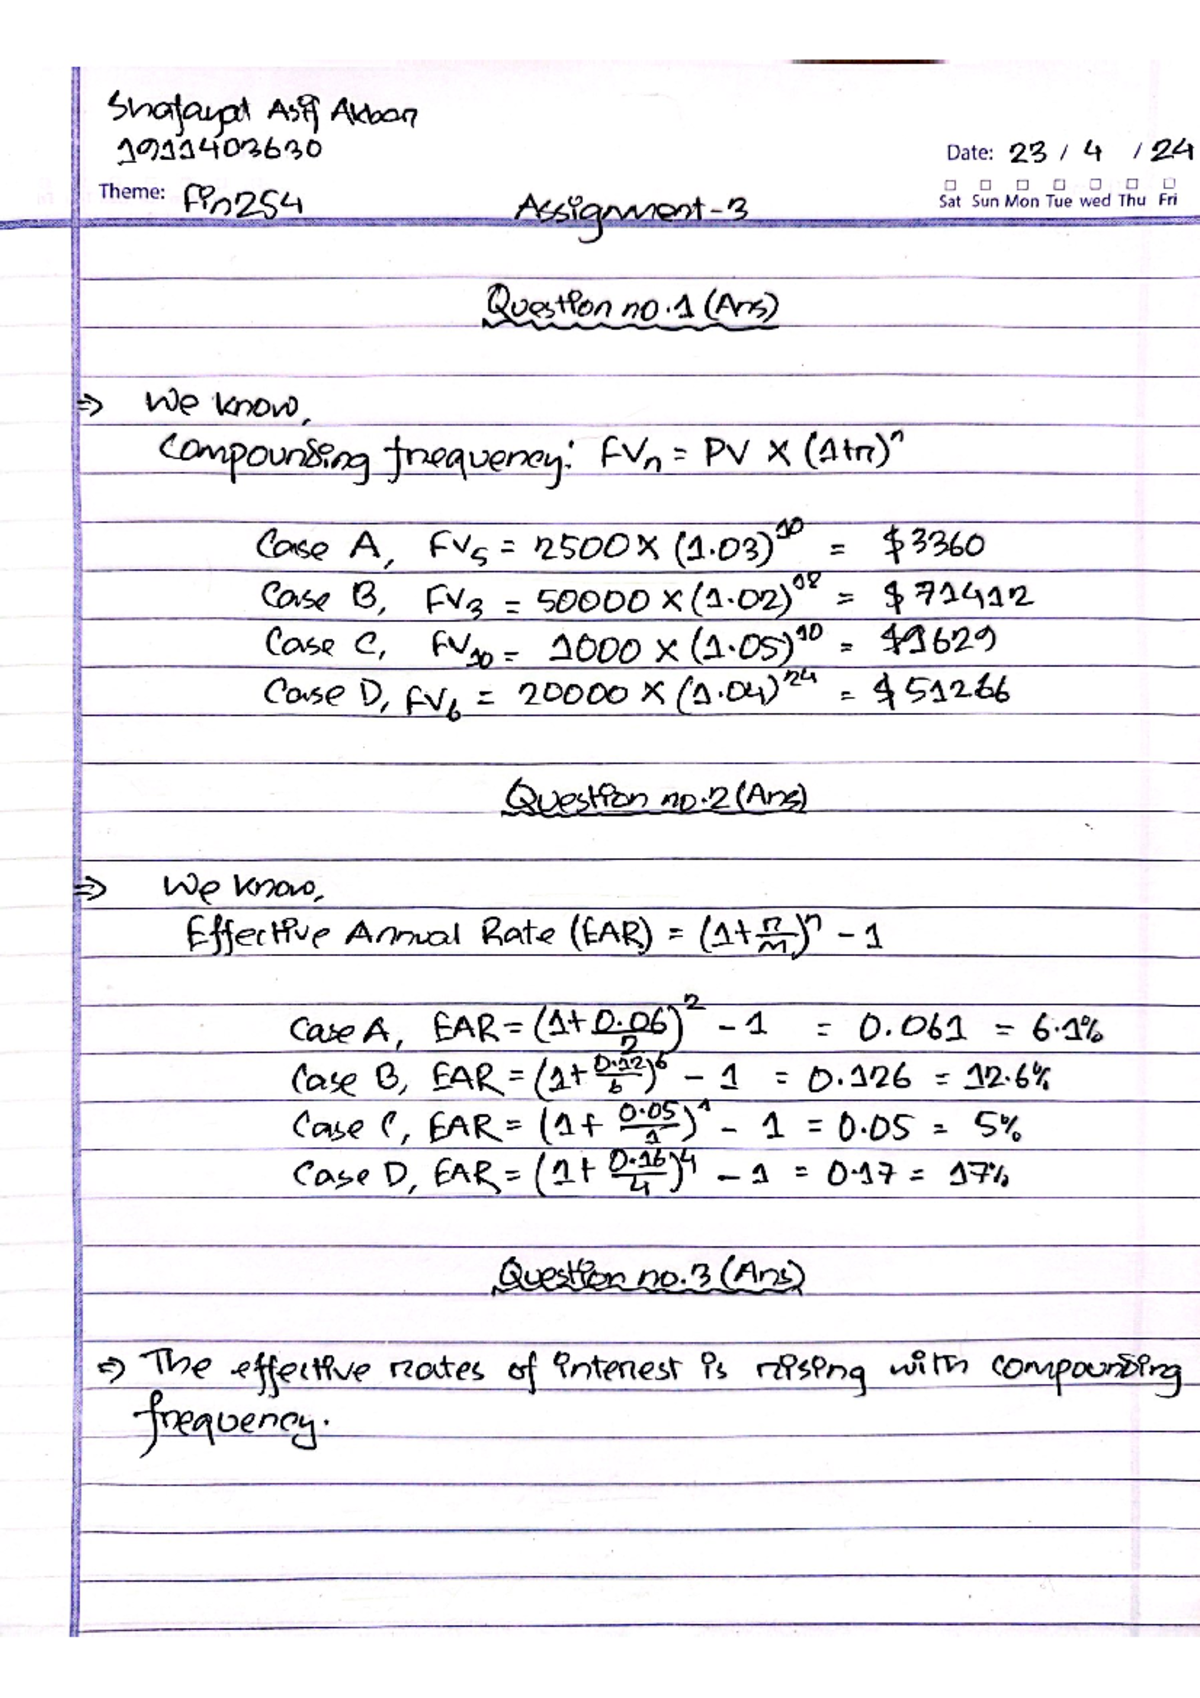 Shafayat Asif Akbar
1911403630
Date: 23 / 4 / 24
Theme: Fin254
Assignment-3
Sat Sun Mon Tue wed Thu Fri
Question no.1 (Ans)
⇒ We know,
Compounding frequency: FVn = PV × (1+r)^n
Case A, FV5 = 2500 × (1.03)^10 = $3360
Case B, FV3 = 50000 × (1.02)^18 = $71412
Case C, FV10 = 1000 × (1.05)^10 = $1629
Case D, FV6 = 20000 × (1.04)^24 = $51266
Question no.2 (Ans)
⇒ We know,
Effective Annual Rate (EAR) = (1+r/m)^n - 1
Case A, EAR = (1+0.06/2)^2 - 1 = 0.061 = 6.1%
Case B, EAR = (1+0.12/6)^6 - 1 = 0.126 = 12.6%
Case C, EAR = (1+0.05/1)^1 - 1 = 0.05 = 5%
Case D, EAR = (1+0.16/4)^4 - 1 = 0.17 = 17%
Question no.3 (Ans)
⇒ The effective rates of interest is rising with compounding
frequency.